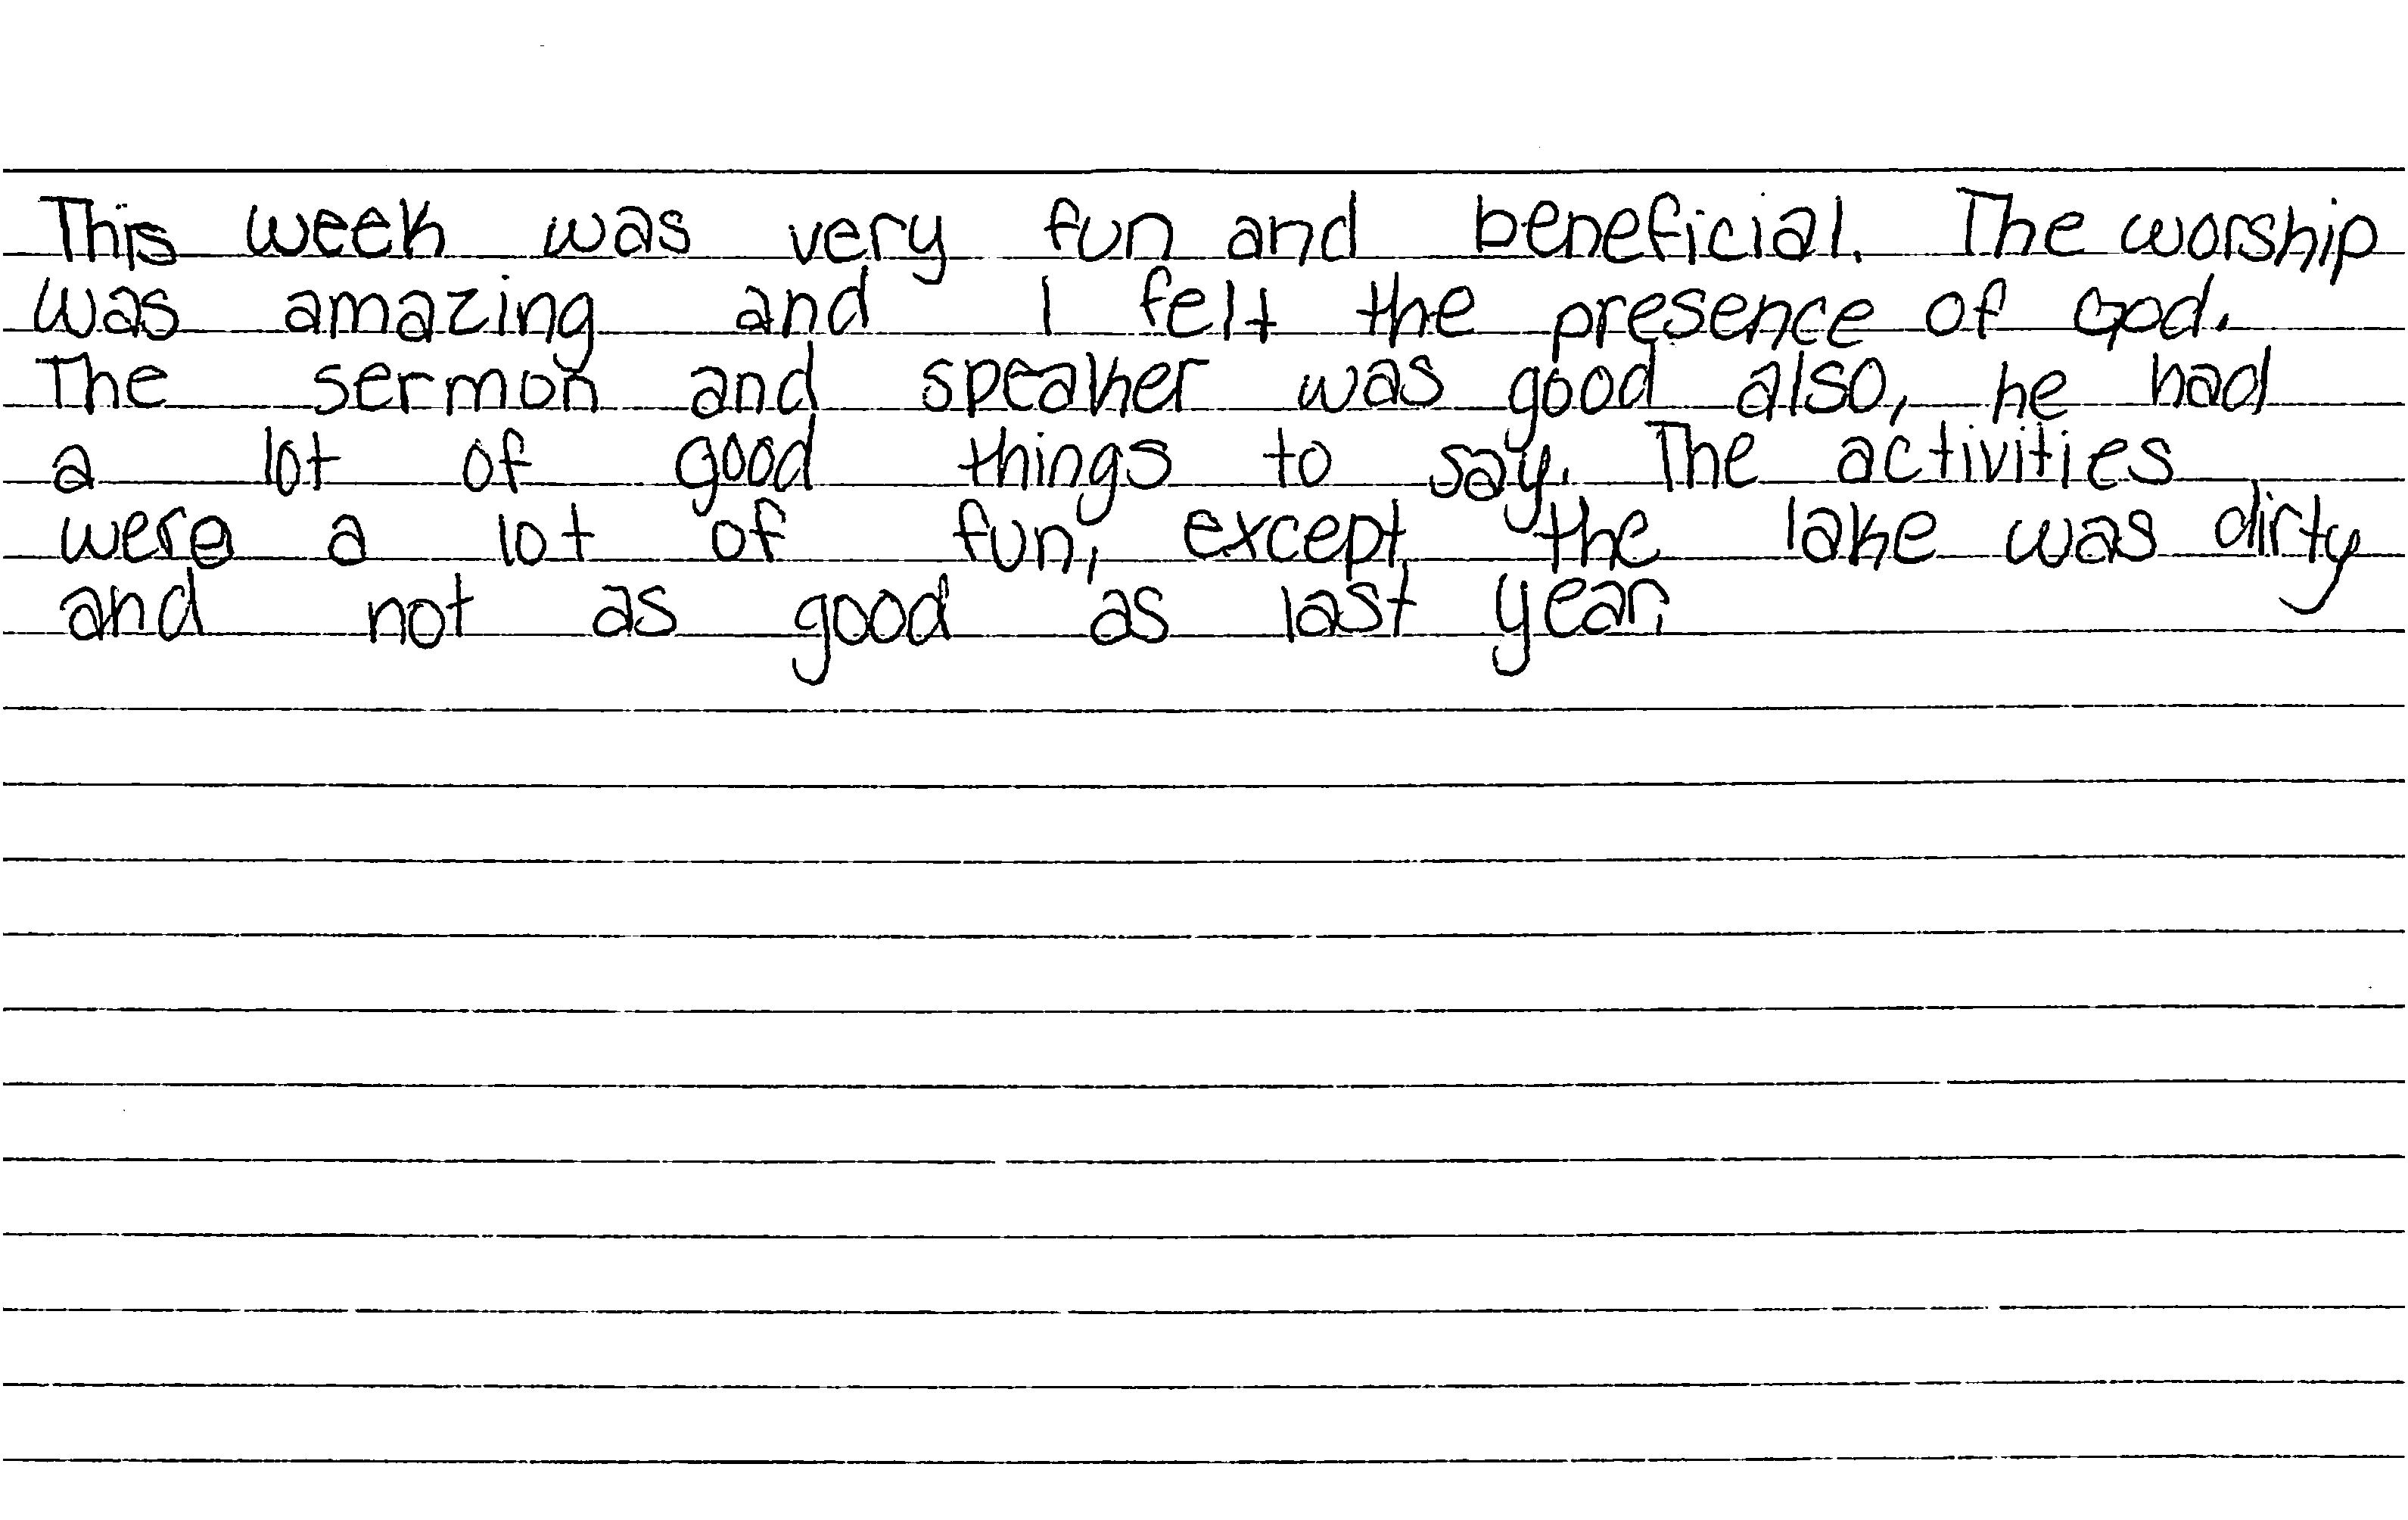 This week was very fun and beneficial. The worship
was amazing and I felt the presence of God.
The sermon and speaker was good also, he had
a lot of good things to say. The activities
were a lot of fun, except the lake was dirty
and not as good as last year.